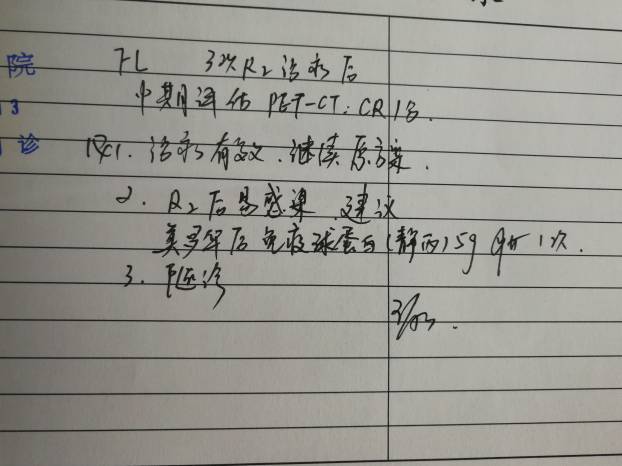 院
3
诊
FL 3次R2治疗后
中期评估 PET-CT: CR
1. 治疗有效. 继续原方案.
2. R2后易感染 建议
后免疫球蛋白(静丙) 5g 1次.
3. 随诊